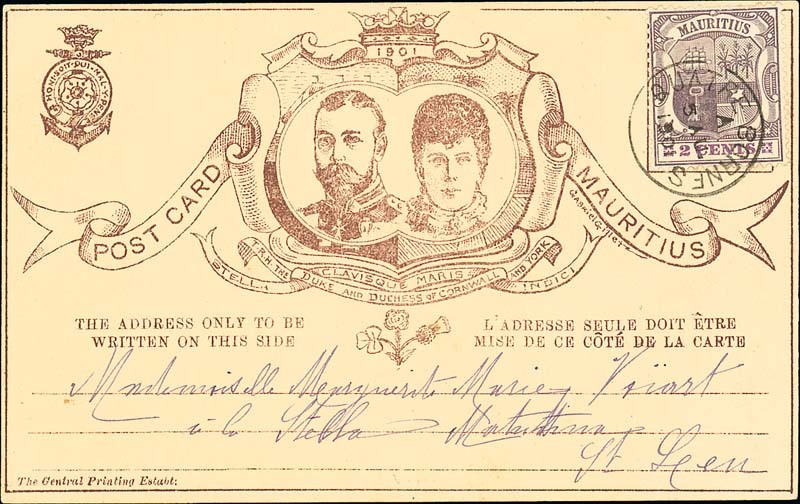 1901
HONI SOIT QUI MAL Y PENSE
MAURITIUS
2 CENTS
QUATRE BORNES
POST CARD
MAURITIUS
Gabriel Gillet
T.R.H. THE DUKE AND DUCHESS OF CORNWALL AND YORK
STELLA CLAVISQUE MARIS INDICI
THE ADDRESS ONLY TO BE
WRITTEN ON THIS SIDE
L'ADRESSE SEULE DOIT ÊTRE
MISE DE CE CÔTÉ DE LA CARTE
Mademoiselle Marguerite Marie
à la Stella Matutina
St Leu
The Central Printing Estabt: